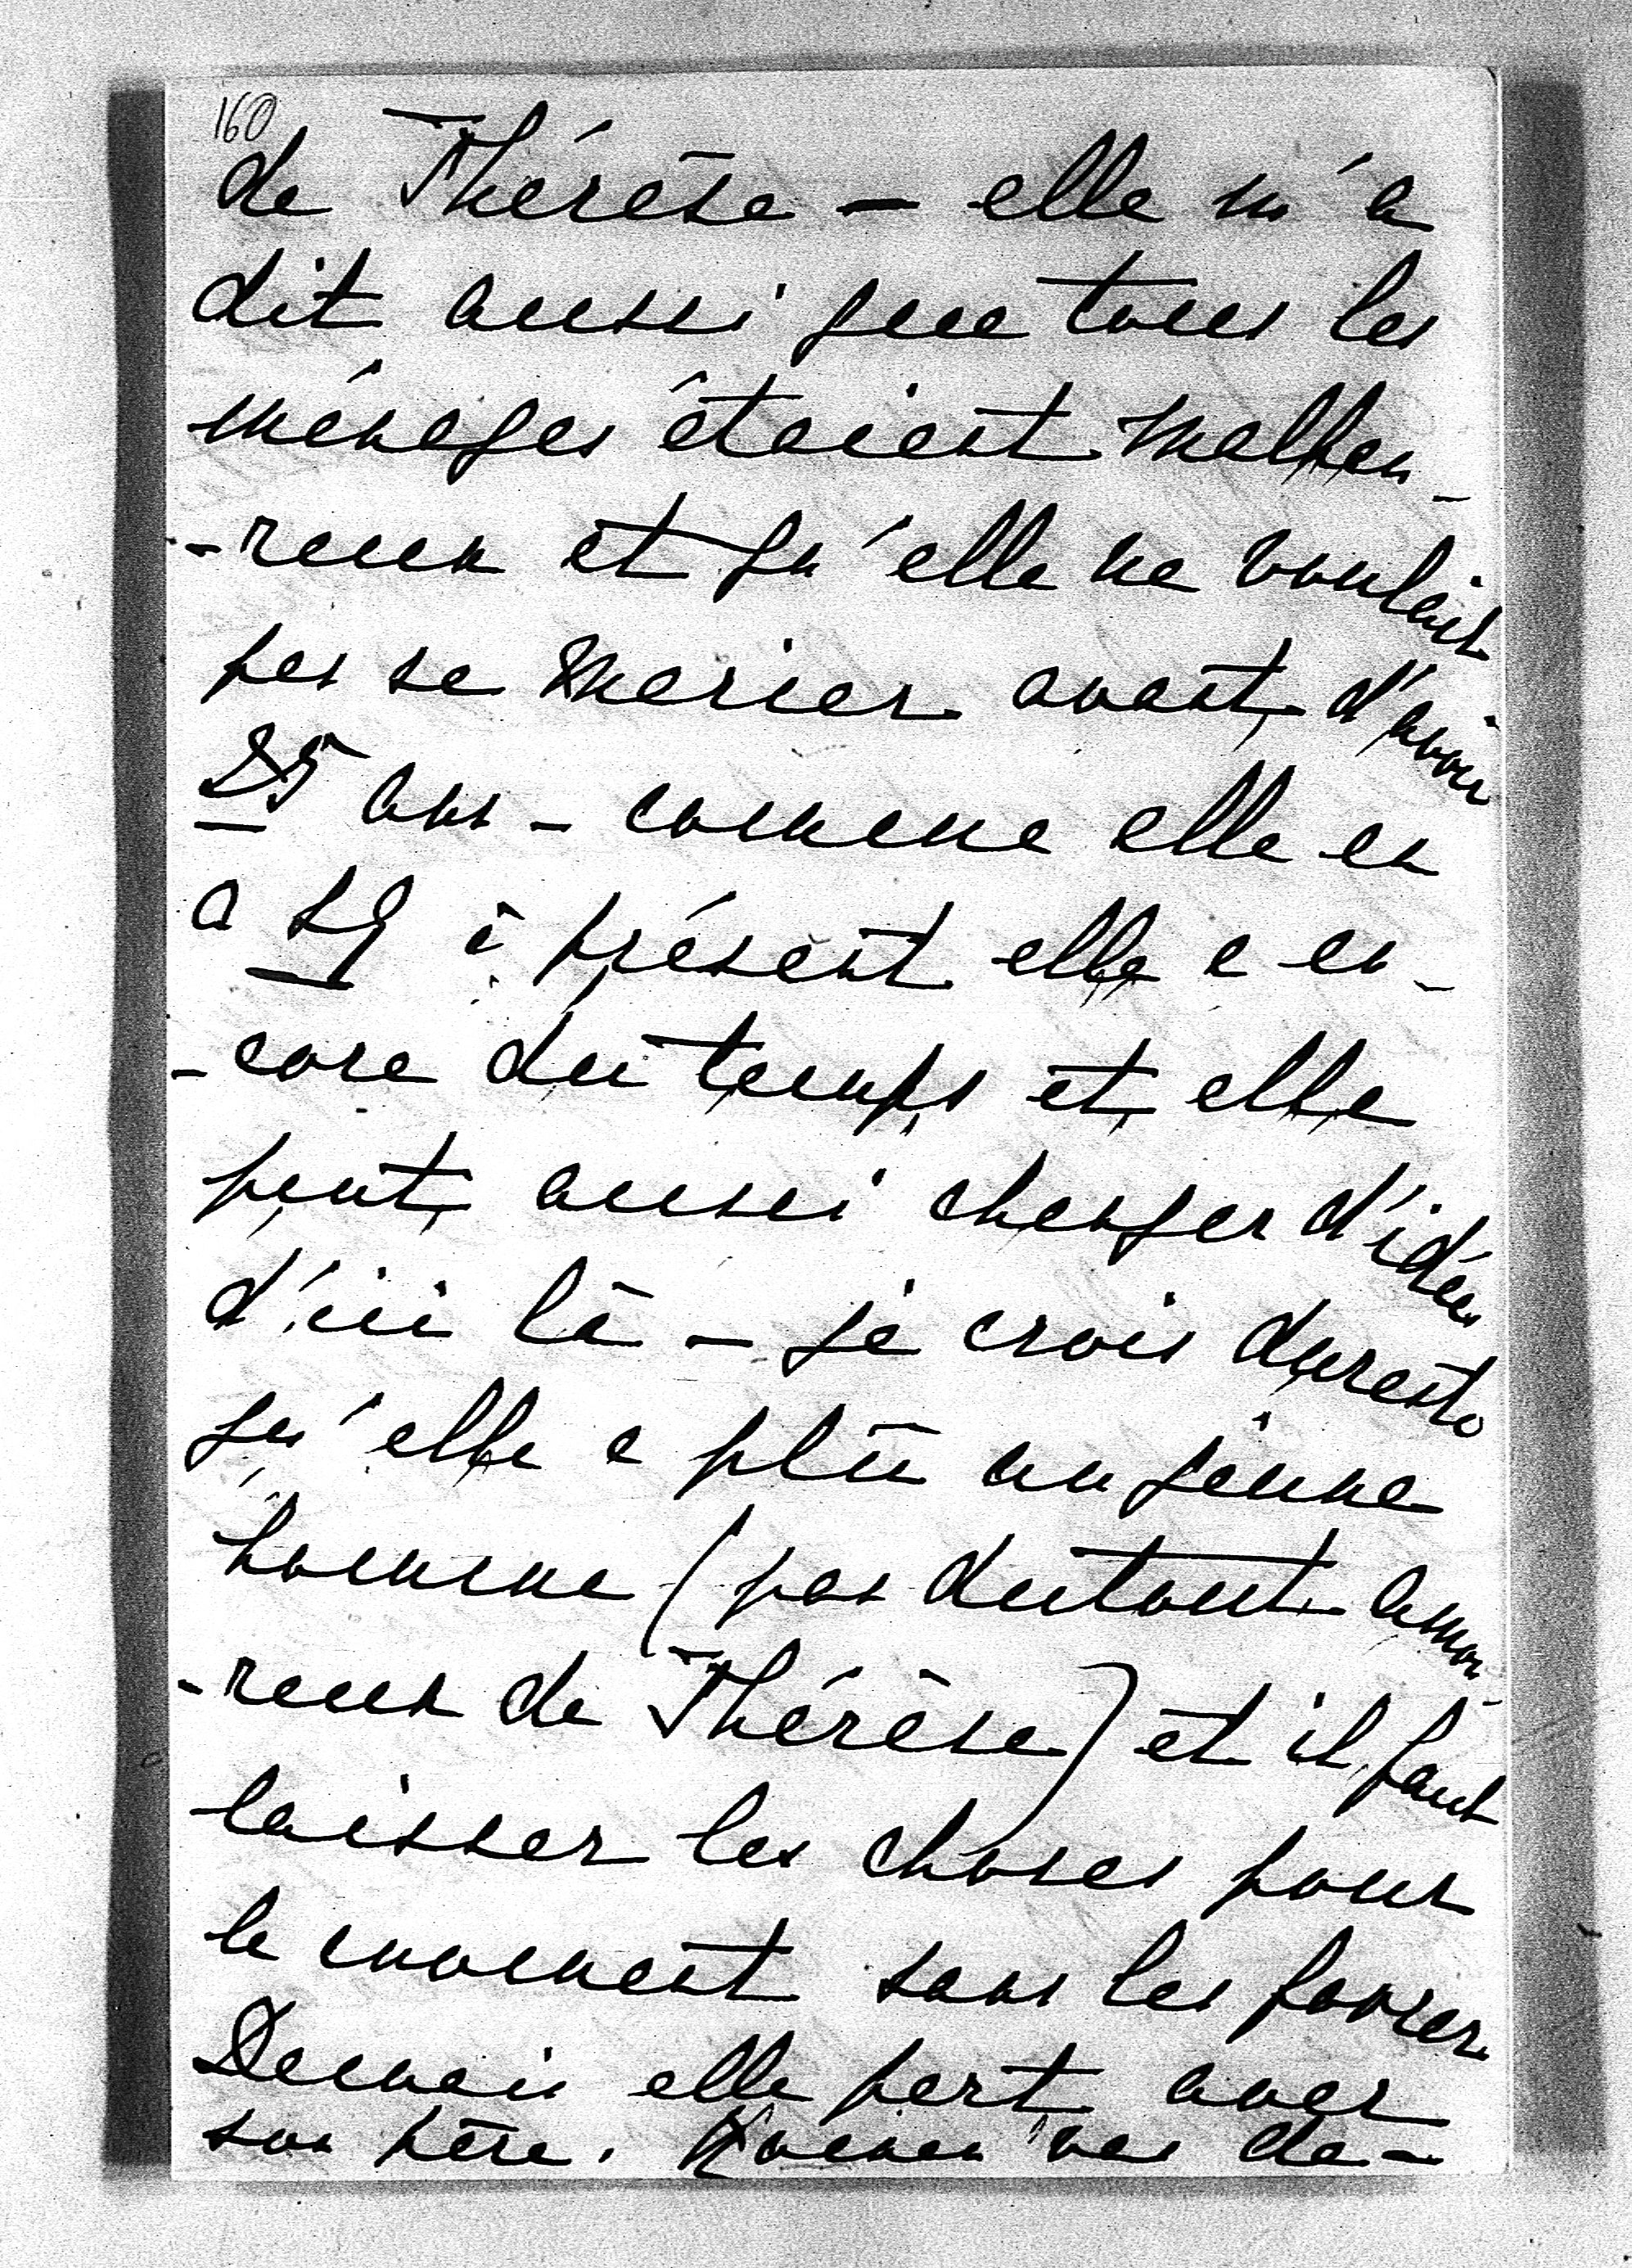 160
de Thérèse — elle m'a
dit aussi que tous les
ménages étaient malheu-
-reux et qu'elle ne voulait
pas se marier avant d'avoir
25 ans - comme elle en
a 19 à présent elle a en-
-core du temps et elle
peut aussi changer d'idées
d'ici là — je crois dureste
qu'elle a plû au jeune
homme (pas dutout amou-
-reux de Thérèse) et il faut
laisser les choses pour
le moment sans les forcer.
Demain elle part avec
son père. nes de-